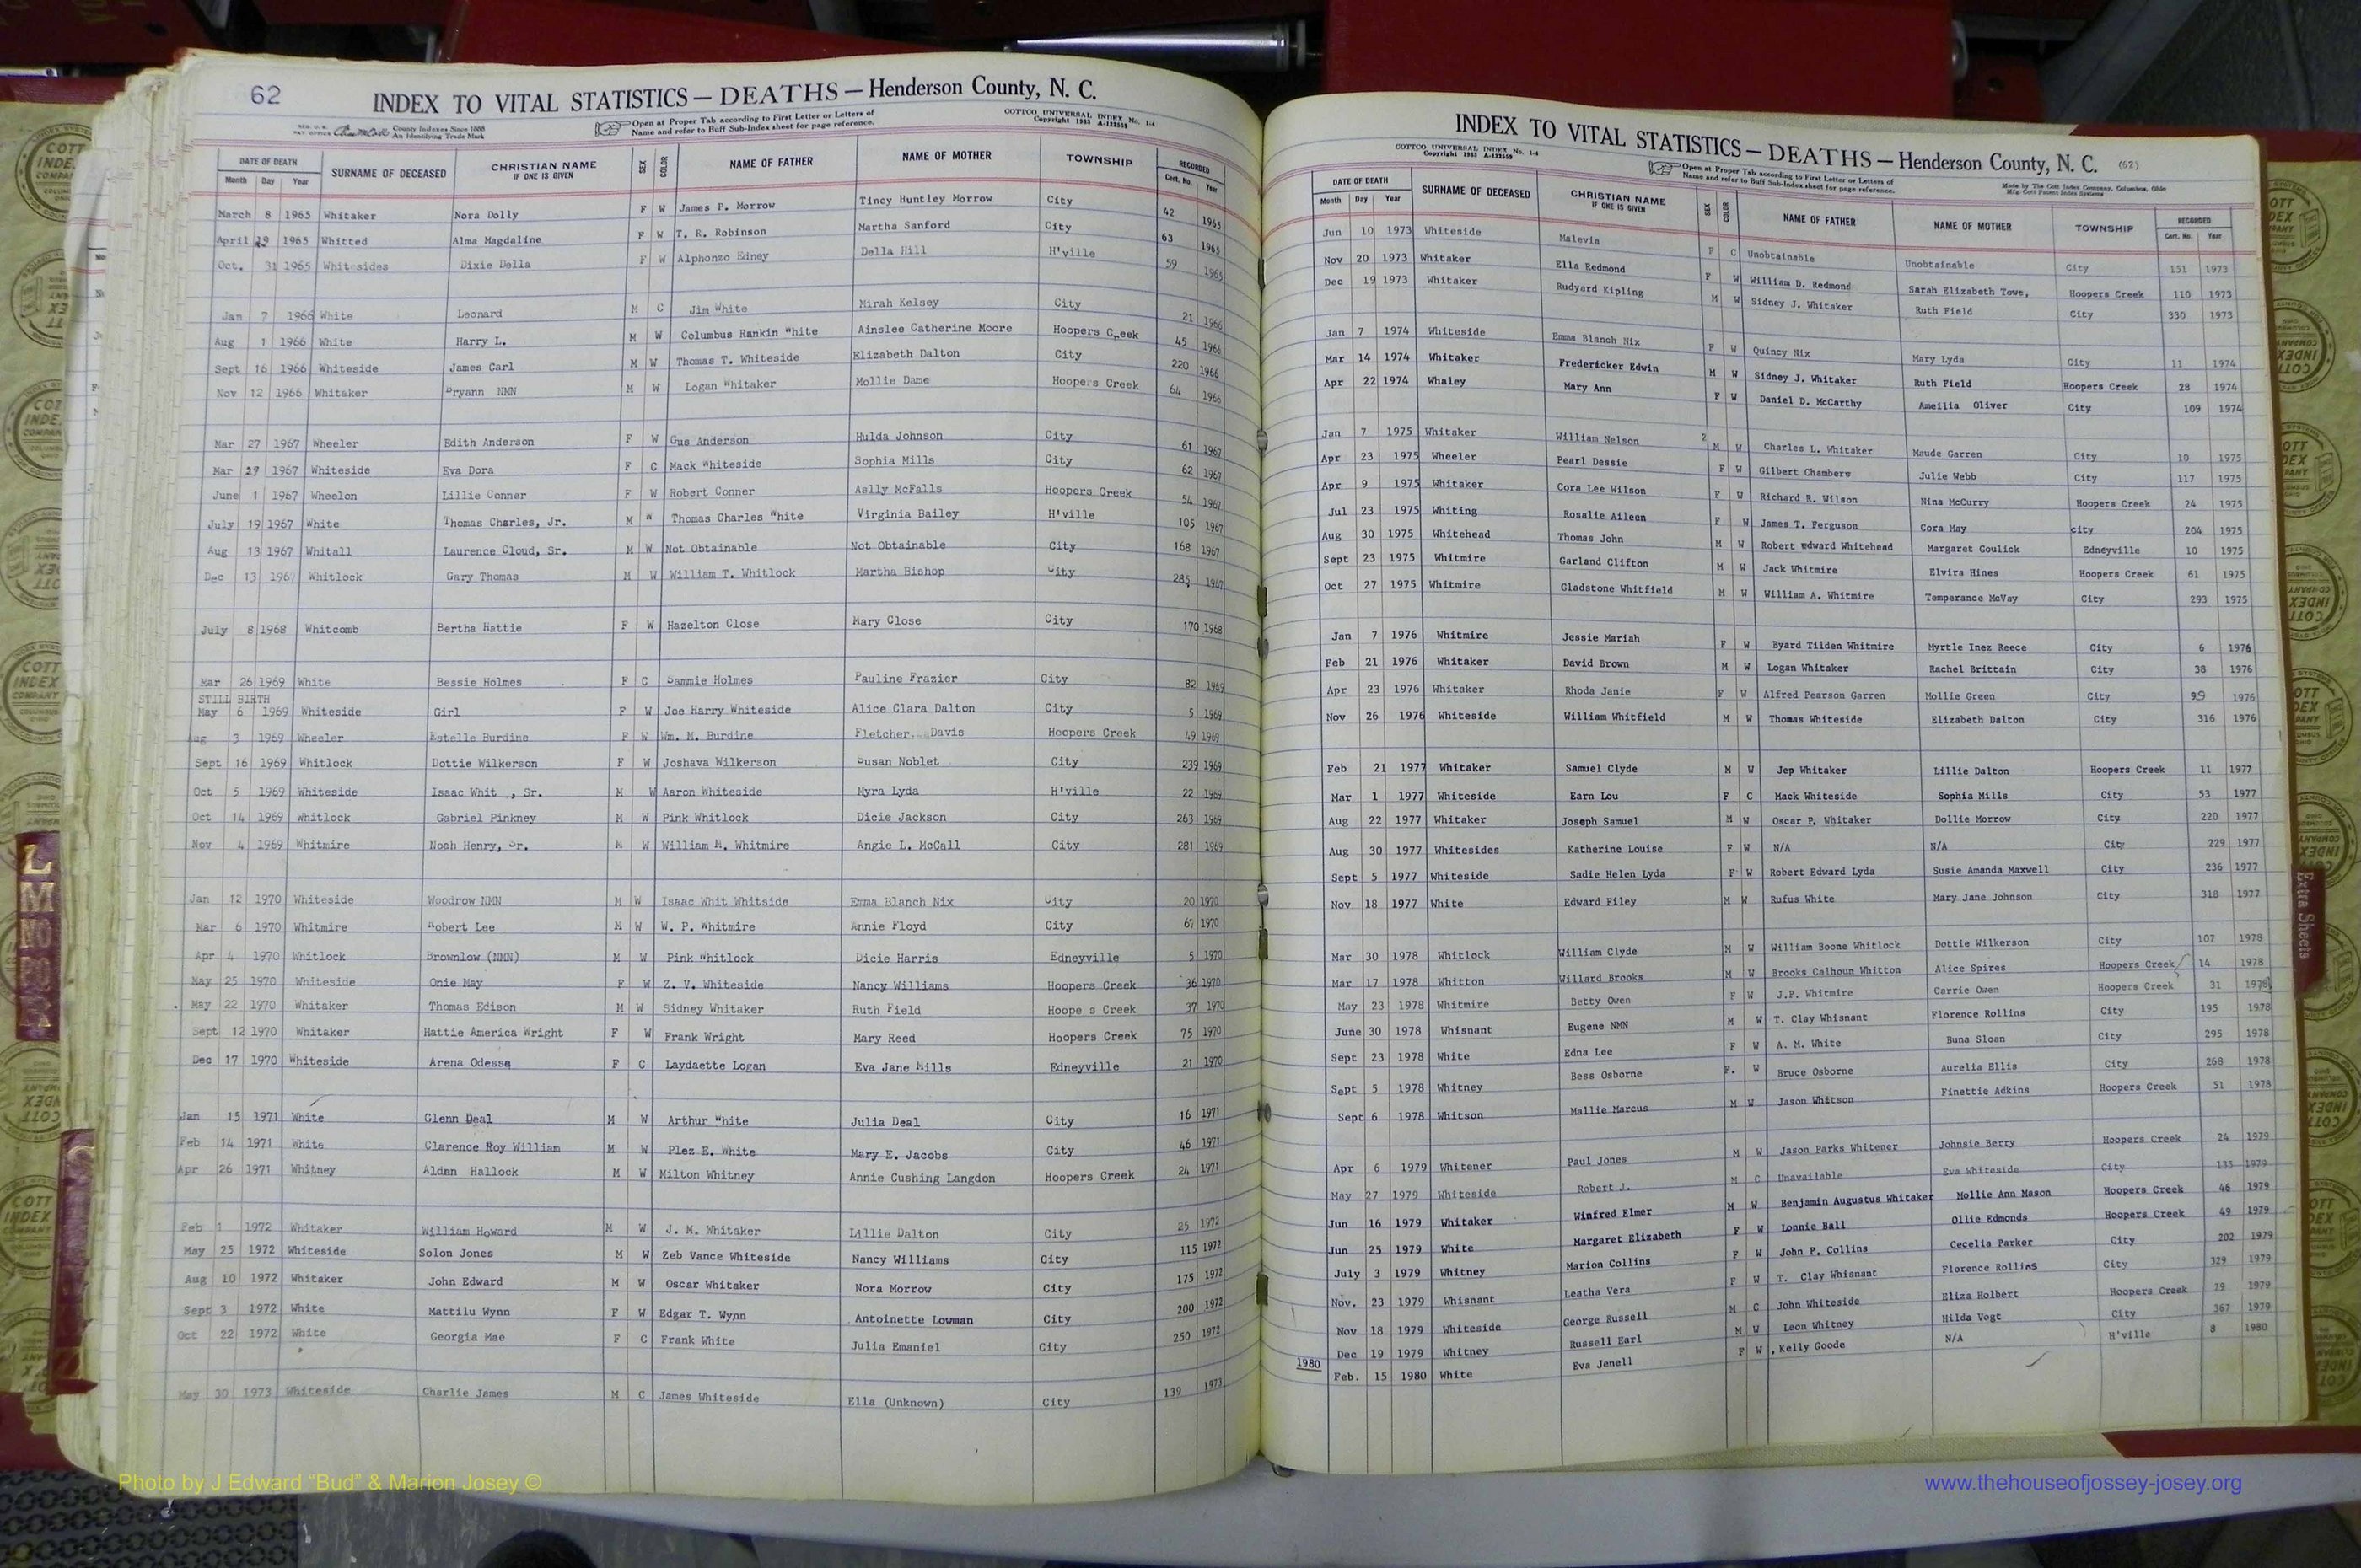 62
INDEX TO VITAL STATISTICS — DEATHS — Henderson County, N. C.
County Indexes Since 1888
An Identifying Trade Mark
Open at Proper Tab according to First Letter or Letters of
Name and refer to Buff Sub-Index sheet for page reference.
COTTCO UNIVERSAL INDEX No. 1-4
Copyright 1933 A-132559
DATE OF DEATH SURNAME OF DECEASED CHRISTIAN NAME IF ONE IS GIVEN SEX COLOR NAME OF FATHER NAME OF MOTHER TOWNSHIP RECORDED
Month Day Year Cert. No. Year
March 8 1965 Whitaker Nora Dolly F W James P. Morrow Tincy Huntley Morrow City 42 1965
April 19 1965 Whitted Alma Magdaline F W T. R. Robinson Martha Sanford City 63 1965
Oct. 31 1965 Whitesides Dixie Della F W Alphonzo Edney Della Hill H'ville 59 1965
Jan 7 1966 White Leonard M C Jim White Mirah Kelsey City 21 1966
Aug 1 1966 White Harry L. M W Columbus Rankin White Ainslee Catherine Moore Hoopers Creek 45 1966
Sept 16 1966 Whiteside James Carl M W Thomas T. Whiteside Elizabeth Dalton City 220 1966
Nov 12 1966 Whitaker Bryann NMN M W Logan Whitaker Mollie Dame Hoopers Creek 64 1966
Mar 27 1967 Wheeler Edith Anderson F W Gus Anderson Hulda Johnson City 61 1967
Mar 27 1967 Whiteside Eva Dora F C Mack Whiteside Sophia Mills City 62 1967
June 1 1967 Wheelon Lillie Conner F W Robert Conner Aslly McFalls Hoopers Creek 54 1967
July 19 1967 White Thomas Charles, Jr. M W Thomas Charles White Virginia Bailey H'ville 105 1967
Aug 13 1967 Whitall Laurence Cloud, Sr. M W Not Obtainable Not Obtainable City 168 1967
Dec 13 1967 Whitlock Gary Thomas M W William T. Whitlock Martha Bishop City 285 1967
July 8 1968 Whitcomb Bertha Hattie F W Hazelton Close Mary Close City 170 1968
Mar 26 1969 White Bessie Holmes F C Sammie Holmes Pauline Frazier City 82 1969
STILL BIRTH
May 6 1969 Whiteside Girl F W Joe Harry Whiteside Alice Clara Dalton City 5 1969
Aug 3 1969 Wheeler Estelle Burdine F W Wm. M. Burdine Fletcher Davis Hoopers Creek 49 1969
Sept 16 1969 Whitlock Dottie Wilkerson F W Joshava Wilkerson Susan Noblet City 239 1969
Oct 5 1969 Whiteside Isaac Whit , Sr. M W Aaron Whiteside Myra Lyda H'ville 22 1969
Oct 14 1969 Whitlock Gabriel Pinkney M W Pink Whitlock Dicie Jackson City 263 1969
Nov 4 1969 Whitmire Noah Henry, Sr. M W William M. Whitmire Angie L. McCall City 281 1969
Jan 12 1970 Whiteside Woodrow NMN M W Isaac Whit Whitside Emma Blanch Nix City 20 1970
Mar 6 1970 Whitmire Robert Lee M W W. P. Whitmire Annie Floyd City 67 1970
Apr 4 1970 Whitlock Brownlow (NMN) M W Pink Whitlock Dicie Harris Edneyville 5 1970
May 25 1970 Whiteside Onie May F W Z. V. Whiteside Nancy Williams Hoopers Creek 36 1970
May 22 1970 Whitaker Thomas Edison M W Sidney Whitaker Ruth Field Hoope s Creek 37 1970
Sept 12 1970 Whitaker Hattie America Wright F W Frank Wright Mary Reed Hoopers Creek 75 1970
Dec 17 1970 Whiteside Arena Odessa F C Laydaette Logan Eva Jane Mills Edneyville 21 1970
Jan 15 1971 White Glenn Deal M W Arthur White Julia Deal City 16 1971
Feb 14 1971 White Clarence Roy William M W Plez E. White Mary E. Jacobs City 46 1971
Apr 26 1971 Whitney Aldmn Hallock M W Milton Whitney Annie Cushing Langdon Hoopers Creek 24 1971
Feb 1 1972 Whitaker William Howard M W J. M. Whitaker Lillie Dalton City 25 1972
May 25 1972 Whiteside Solon Jones M W Zeb Vance Whiteside Nancy Williams City 115 1972
Aug 10 1972 Whitaker John Edward M W Oscar Whitaker Nora Morrow City 175 1972
Sept 3 1972 White Mattilu Wynn F W Edgar T. Wynn Antoinette Lowman City 200 1972
Oct 22 1972 White Georgia Mae F C Frank White Julia Emaniel City 250 1972
May 30 1973 Whiteside Charlie James M C James Whiteside Ella (Unknown) City 139 1973
INDEX TO VITAL STATISTICS — DEATHS — Henderson County, N. C. (62)
COTTCO UNIVERSAL INDEX No. 1-4
Copyright 1933 A-132559
Open at Proper Tab according to First Letter or Letters of
Name and refer to Buff Sub-Index sheet for page reference.
Made by The Cott Index Company, Columbus, Ohio
Mfg. Cott Patent Index Systems
DATE OF DEATH SURNAME OF DECEASED CHRISTIAN NAME IF ONE IS GIVEN SEX COLOR NAME OF FATHER NAME OF MOTHER TOWNSHIP RECORDED
Month Day Year Cert. No. Year
Jun 10 1973 Whiteside Malevia F C Unobtainable Unobtainable City 151 1973
Nov 20 1973 Whitaker Ella Redmond F W William D. Redmond Sarah Elizabeth Towe, Hoopers Creek 110 1973
Dec 19 1973 Whitaker Rudyard Kipling M W Sidney J. Whitaker Ruth Field City 330 1973
Jan 7 1974 Whiteside Emma Blanch Nix F W Quincy Nix Mary Lyda City 11 1974
Mar 14 1974 Whitaker Fredericker Edwin M W Sidney J. Whitaker Ruth Field Hoopers Creek 28 1974
Apr 22 1974 Whaley Mary Ann F W Daniel D. McCarthy Ameilia Oliver City 109 1974
Jan 7 1975 Whitaker William Nelson 2 M W Charles L. Whitaker Maude Garren City 10 1975
Apr 23 1975 Wheeler Pearl Dessie F W Gilbert Chambers Julie Webb City 117 1975
Apr 9 1975 Whitaker Cora Lee Wilson F W Richard R. Wilson Nina McCurry Hoopers Creek 24 1975
Jul 23 1975 Whiting Rosalie Aileen F W James T. Ferguson Cora May city 204 1975
Aug 30 1975 Whitehead Thomas John M W Robert Edward Whitehead Margaret Goulick Edneyville 10 1975
Sept 23 1975 Whitmire Garland Clifton M W Jack Whitmire Elvira Hines Hoopers Creek 61 1975
Oct 27 1975 Whitmire Gladstone Whitfield M W William A. Whitmire Temperance McVay City 293 1975
Jan 7 1976 Whitmire Jessie Mariah F W Byard Tilden Whitmire Myrtle Inez Reece City 6 1976
Feb 21 1976 Whitaker David Brown M W Logan Whitaker Rachel Brittain City 38 1976
Apr 23 1976 Whitaker Rhoda Janie F W Alfred Pearson Garren Mollie Green City 99 1976
Nov 26 1976 Whiteside William Whitfield M W Thomas Whiteside Elizabeth Dalton City 316 1976
Feb 21 1977 Whitaker Samuel Clyde M W Jep Whitaker Lillie Dalton Hoopers Creek 11 1977
Mar 1 1977 Whiteside Earn Lou F C Mack Whiteside Sophia Mills City 53 1977
Aug 22 1977 Whitaker Joseph Samuel M W Oscar P. Whitaker Dollie Morrow City 220 1977
Aug 30 1977 Whitesides Katherine Louise F W N/A N/A City 229 1977
Sept 5 1977 Whiteside Sadie Helen Lyda F W Robert Edward Lyda Susie Amanda Maxwell City 236 1977
Nov 18 1977 White Edward Filey M W Rufus White Mary Jane Johnson City 318 1977
Mar 30 1978 Whitlock William Clyde M W William Boone Whitlock Dottie Wilkerson City 107 1978
Mar 17 1978 Whitton Willard Brooks M W Brooks Calhoun Whitton Alice Spires Hoopers Creek 14 1978
May 23 1978 Whitmire Betty Owen F W J.P. Whitmire Carrie Owen Hoopers Creek 31 1978
June 30 1978 Whisnant Eugene NMN M W T. Clay Whisnant Florence Rollins City 195 1978
Sept 23 1978 White Edna Lee F W A. M. White Buna Sloan City 295 1978
Sept 5 1978 Whitney Bess Osborne F. W Bruce Osborne Aurelia Ellis City 268 1978
Sept 6 1978 Whitson Mallie Marcus M W Jason Whitson Finettie Adkins Hoopers Creek 51 1978
Apr 6 1979 Whitener Paul Jones M W Jason Parks Whitener Johnsie Berry Hoopers Creek 24 1979
May 27 1979 Whiteside Robert J. M C Unavailable Eva Whiteside City 135 1979
Jun 16 1979 Whitaker Winfred Elmer M W Benjamin Augustus Whitaker Mollie Ann Mason Hoopers Creek 46 1979
Jun 25 1979 White Margaret Elizabeth F W Lonnie Ball Ollie Edmonds Hoopers Creek 49 1979
July 3 1979 Whitney Marion Collins F W John P. Collins Cecelia Parker City 202 1979
Nov. 23 1979 Whisnant Leatha Vera F W T. Clay Whisnant Florence Rollins City 329 1979
Nov 18 1979 Whiteside George Russell M C John Whiteside Eliza Holbert Hoopers Creek 79 1979
Dec 19 1979 Whitney Russell Earl M W Leon Whitney Hilda Vogt City 367 1979
1980
Feb. 15 1980 White Eva Jenell F W , Kelly Goode N/A H'ville 8 1980
Extra Sheets
Photo by J Edward "Bud" & Marion Josey ©
www.thehouseofjossey-josey.org